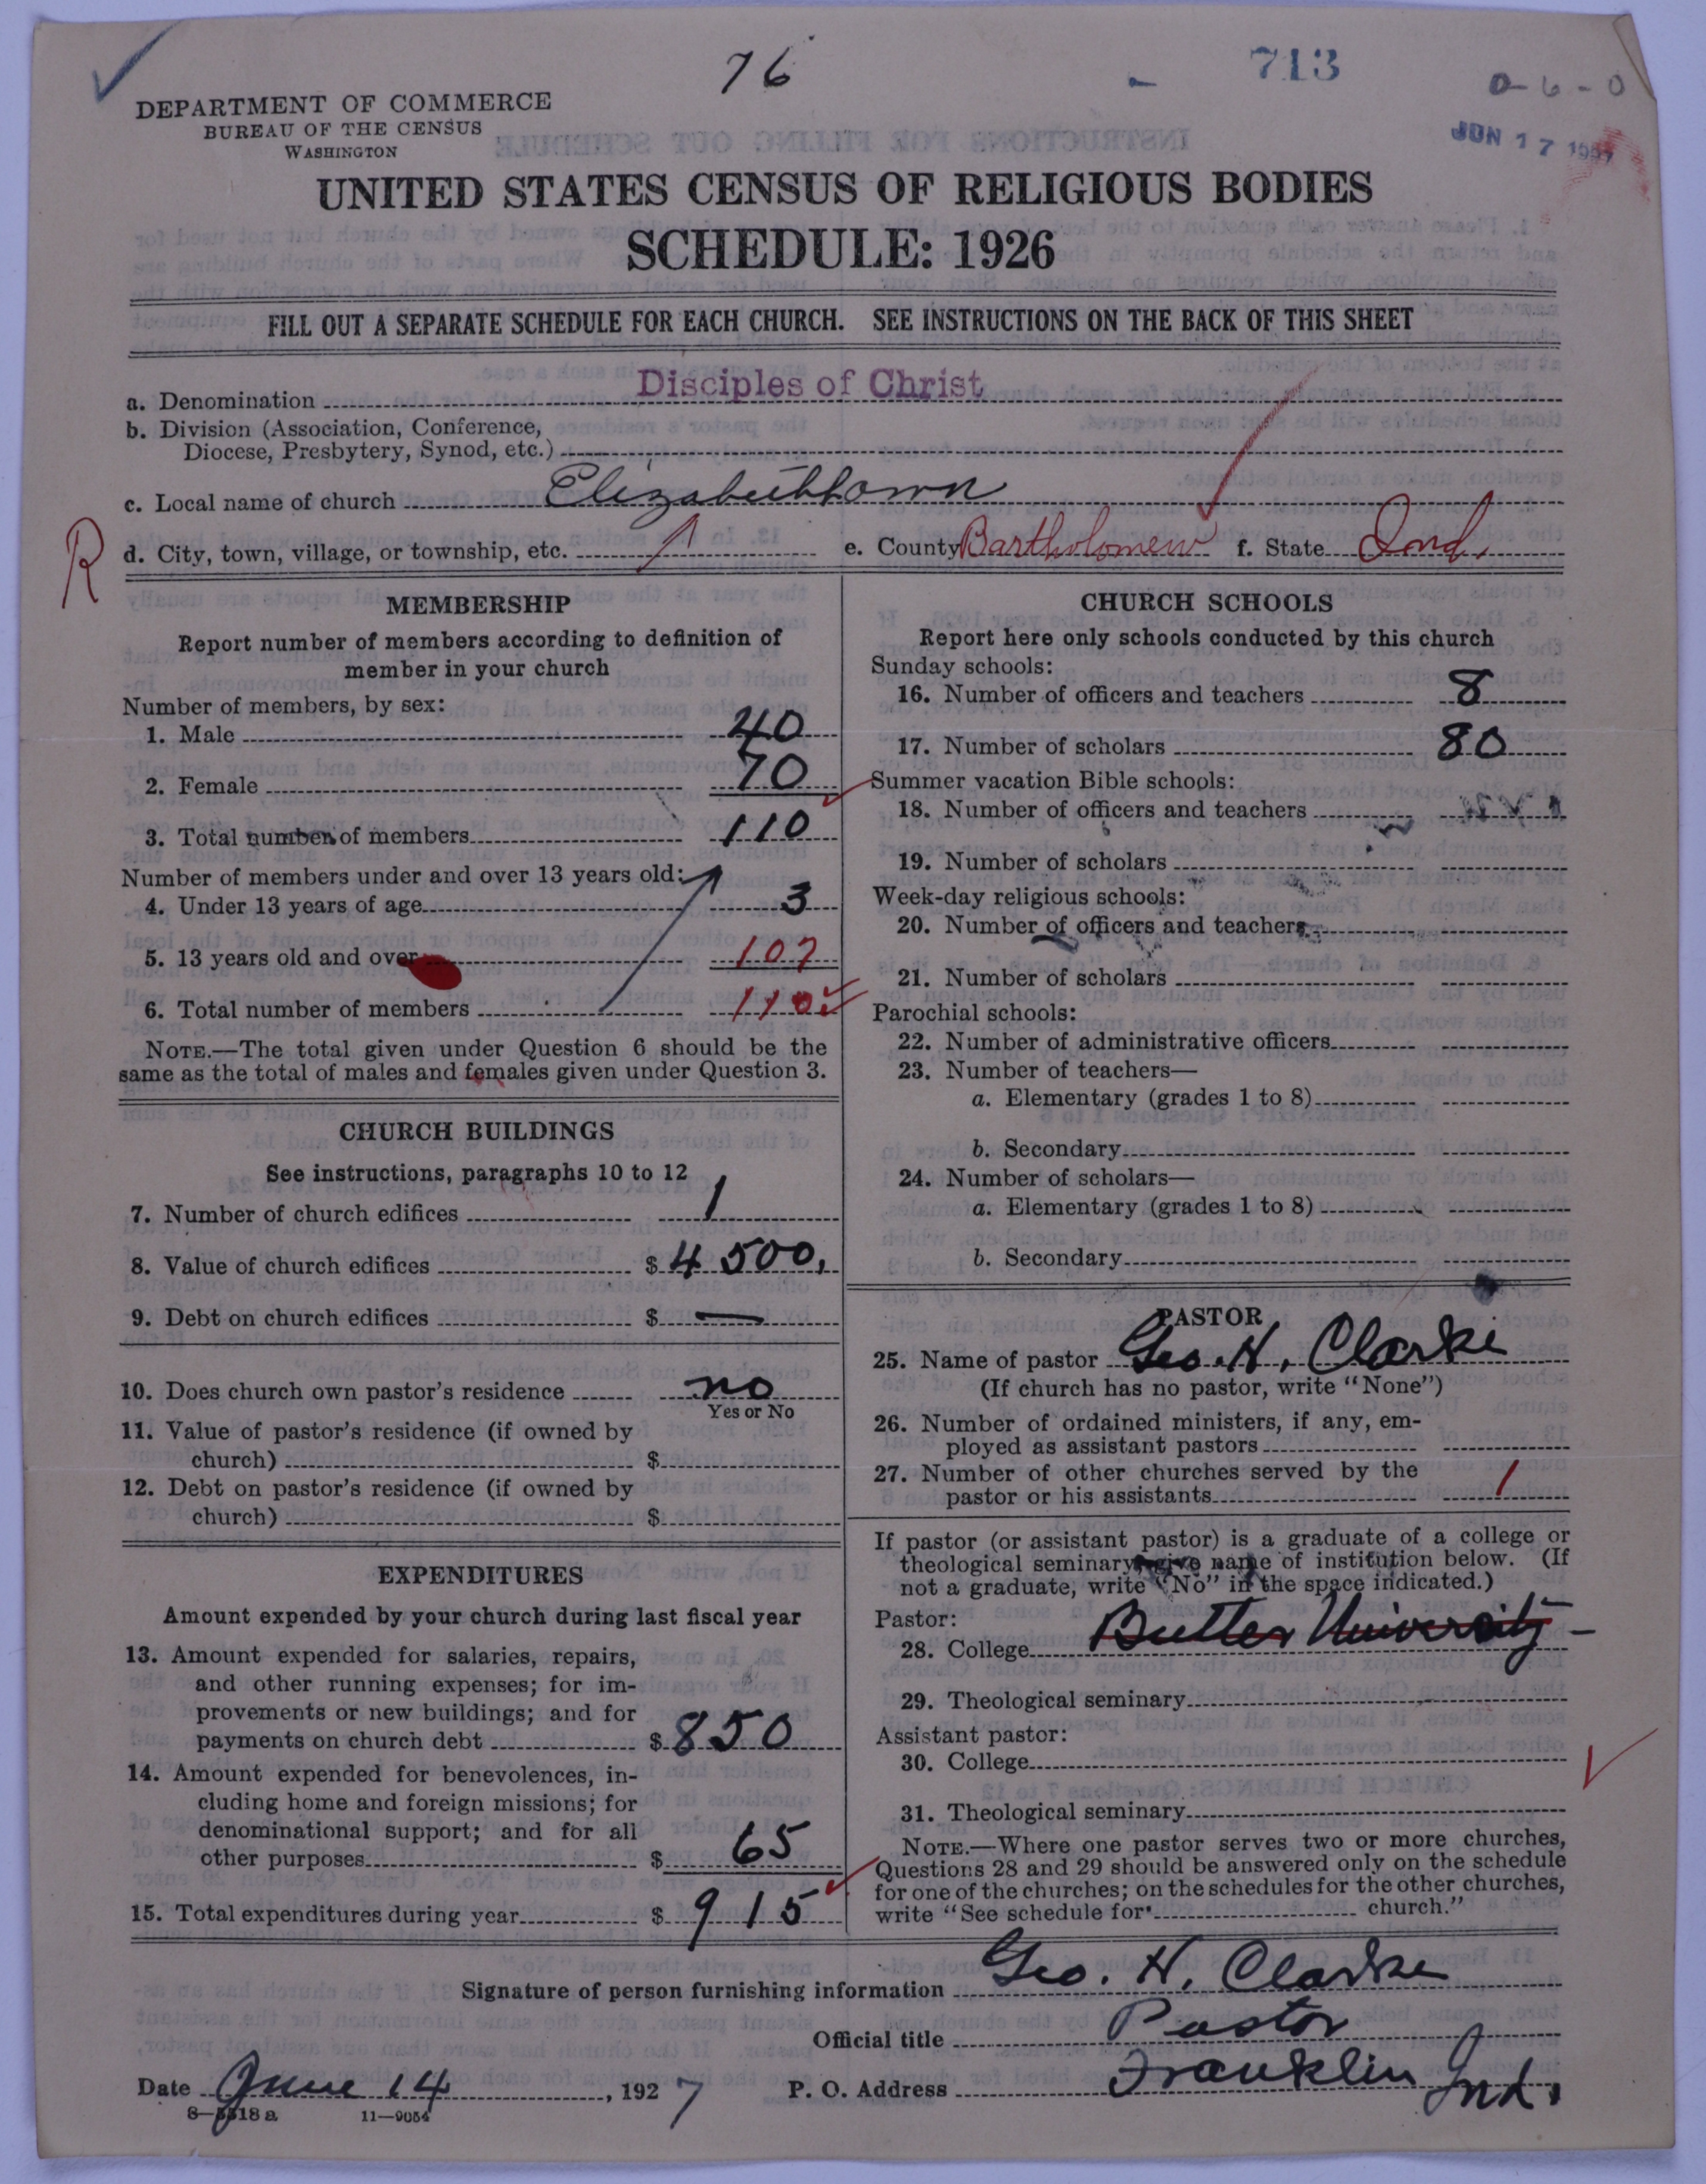 76
713
0-6-0
DEPARTMENT OF COMMERCE
BUREAU OF THE CENSUS
WASHINGTON
JUN 17 1927
UNITED STATES CENSUS OF RELIGIOUS BODIES
SCHEDULE: 1926
FILL OUT A SEPARATE SCHEDULE FOR EACH CHURCH. SEE INSTRUCTIONS ON THE BACK OF THIS SHEET
a. Denomination Disciples of Christ
b. Division (Association, Conference,
Diocese, Presbytery, Synod, etc.)
c. Local name of church Elizabethtown
R
d. City, town, village, or township, etc. e. County Bartholomew f. State Ind.
MEMBERSHIP
Report number of members according to definition of
member in your church
Number of members, by sex:
1. Male 40
2. Female 70
3. Total number of members 110
Number of members under and over 13 years old:
4. Under 13 years of age 3
5. 13 years old and over 107
6. Total number of members 110
NOTE.—The total given under Question 6 should be the
same as the total of males and females given under Question 3.
CHURCH BUILDINGS
See instructions, paragraphs 10 to 12
7. Number of church edifices 1
8. Value of church edifices $ 4500.
9. Debt on church edifices $ —
10. Does church own pastor's residence no
Yes or No
11. Value of pastor's residence (if owned by
church) $
12. Debt on pastor's residence (if owned by
church) $
EXPENDITURES
Amount expended by your church during last fiscal year
13. Amount expended for salaries, repairs,
and other running expenses; for im-
provements or new buildings; and for
payments on church debt $ 850
14. Amount expended for benevolences, in-
cluding home and foreign missions; for
denominational support; and for all
other purposes $ 65
15. Total expenditures during year $ 915
CHURCH SCHOOLS
Report here only schools conducted by this church
Sunday schools:
16. Number of officers and teachers 8
17. Number of scholars 80
Summer vacation Bible schools:
18. Number of officers and teachers
19. Number of scholars
Week-day religious schools:
20. Number of officers and teachers
21. Number of scholars
Parochial schools:
22. Number of administrative officers
23. Number of teachers—
a. Elementary (grades 1 to 8)
b. Secondary
24. Number of scholars—
a. Elementary (grades 1 to 8)
b. Secondary
PASTOR
25. Name of pastor Geo. H. Clarke
(If church has no pastor, write "None")
26. Number of ordained ministers, if any, em-
ployed as assistant pastors
27. Number of other churches served by the
pastor or his assistants 1
If pastor (or assistant pastor) is a graduate of a college or
theological seminary, give name of institution below. (If
not a graduate, write "No" in the space indicated.)
Pastor:
28. College Butler University -
29. Theological seminary
Assistant pastor:
30. College
31. Theological seminary
NOTE.—Where one pastor serves two or more churches,
Questions 28 and 29 should be answered only on the schedule
for one of the churches; on the schedules for the other churches,
write "See schedule for church."
Signature of person furnishing information Geo. H. Clarke
Official title Pastor
Date June 14, 1927 P. O. Address Franklin Ind.
8—5518 a 11—9054